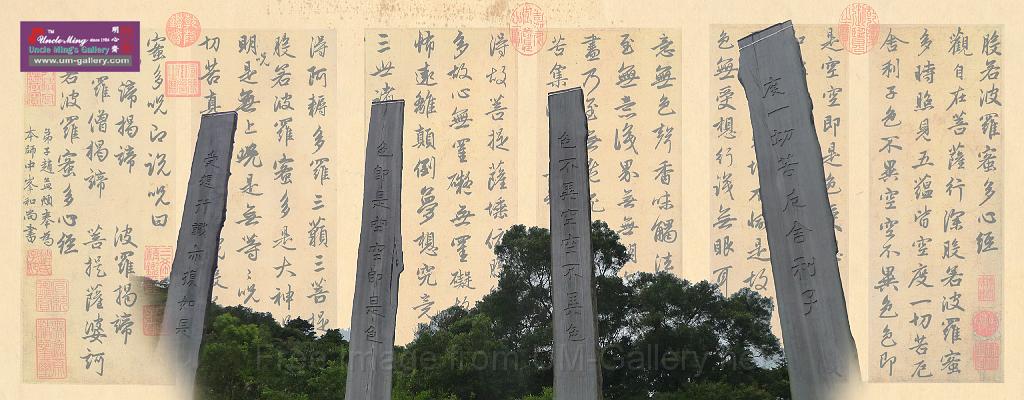 TM
Uncle Ming since 1986
明心齋
Uncle Ming's Gallery
www.um-gallery.com
般若波羅蜜多心經
觀自在菩薩行深般若波羅蜜
多時照見五蘊皆空度一切苦厄
舍利子色不異空空不異色色即
是空空即是色
色無受想行識無眼耳
意無色聲香味觸法
至無意識界無無明
盡乃至無老死
苦集
得故菩提薩埵依般
多故心無罣礙無罣礙故
怖遠離顛倒夢想究竟
三世諸
得阿耨多羅三藐三菩
般若波羅蜜多是大神
明呪是無上呪是無等等呪
切苦真
蜜多呪即說呪曰
諦揭諦 波羅揭諦
羅僧揭諦 菩提薩婆訶
若波羅蜜多心經
弟子趙孟頫奉為
本師中峯和尚書
度一切苦厄舍利子
色不異空空不異色
色即是空空即是色
受想行識亦復如是
Free Image from UM-Gallery.net